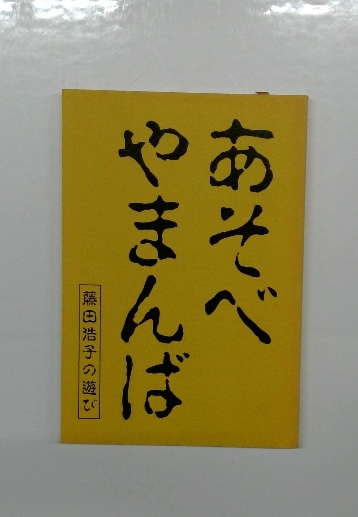 あそべ
やまんば
藤田浩子の遊び